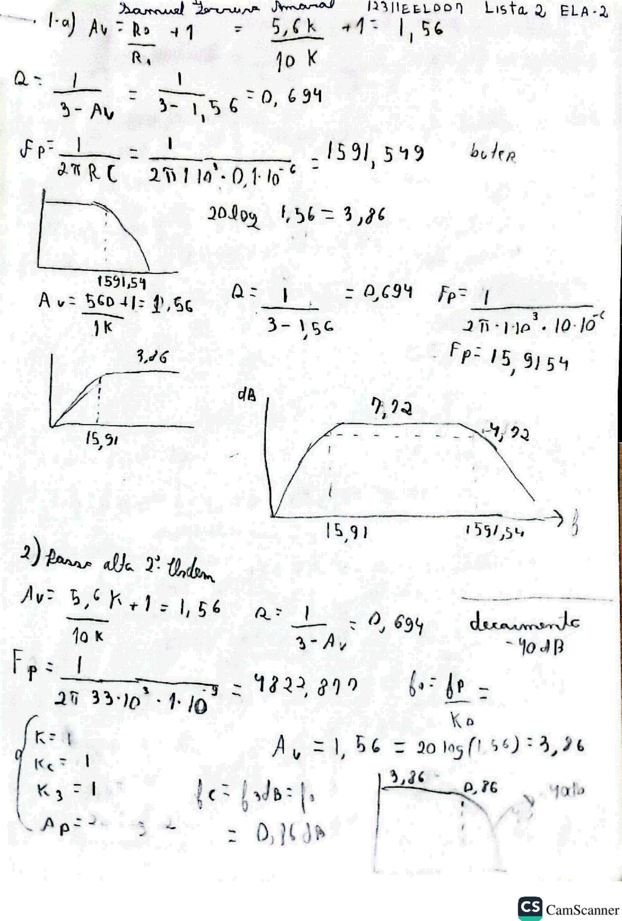 Samuel Ferreira Amaral 12311EEL007 Lista 2 ELA-2
1-a) Av = R0/R1 + 1 = 5,6K/10K + 1 = 1,56
Q = 1/(3 - Av) = 1/(3 - 1,56) = 0,694
FP = 1/(2π R C) = 1/(2π 1 10³ · 0,1 · 10⁻⁶) = 1591,549
20 log 1,56 = 3,86
1591,54
Av = 560/1K + 1 = 1,56 Q = 1/(3 - 1,56) = 0,694 FP = 1/(2π · 1·10³ · 10·10⁻⁶)
FP = 15,9154
3,86
15,91
dB
7,72
4,72
15,91 1591,54 f
2) Passa alta 2ª Ordem
Av = 5,6K/10K + 1 = 1,56 Q = 1/(3 - Av) = 0,694 decaimento
-40dB
FP = 1/(2π 33·10³ · 1·10⁻⁹) = 4822,877 f0 = fP/K0 =
K = 1
Kc = 1
K3 = 1
AP =
Av = 1,56 = 20 log(1,56) = 3,86
fc = f3dB = f0
= 0,86dB
3,86 0,86
CS CamScanner